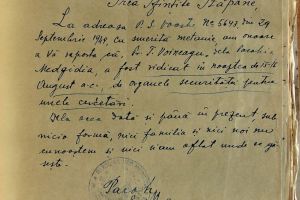 Prea Sfințite Stăpâne,
La adresa P. S. Voastre Nr. 5647 din 29
Septembrie 1949, cu smerită metanie, am onoare
a Vă raporta că, Pr. I. Voineagu, dela parohia
Medgidia, a fost ridicat în noaptea de 15-16
August a.c., de organele securității pentru
unele cercetări.
Dela acea dată și până în prezent, sub
nicio formă, nici familia și nici noi nu
cunoaștem și nici n'am aflat unde se gă-
sește.
Paroh,